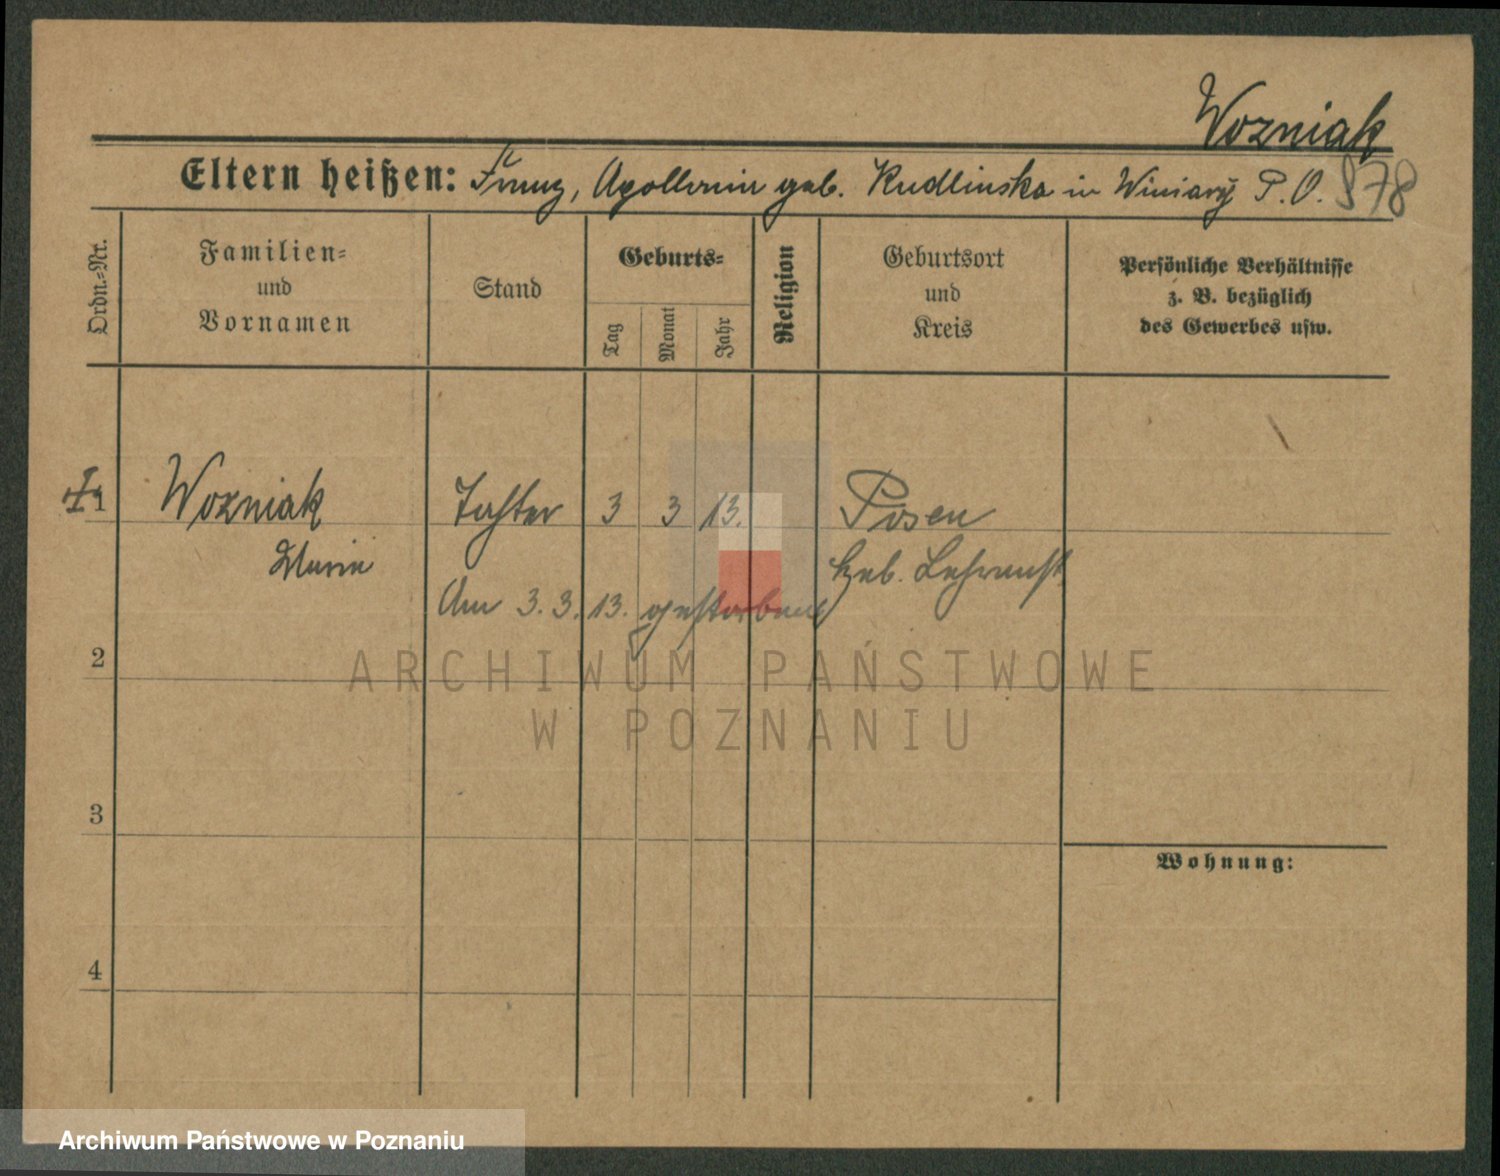 Wozniak
Eltern heißen: Franz, Apollonia geb. Kudlinska in Winiary P. O. 878
Ordn.=Nr.
Familien=
und
Vornamen
Stand
Geburts=
Tag
Monat
Jahr
Religion
Geburtsort
und
Kreis
Persönliche Verhältnisse
z. B. bezüglich
des Gewerbes usw.
1 Wozniak Tochter 3 3 13. Posen
Maria Heb. Lehranst
Am 3. 3. 13. gestorben
2
ARCHIWUM PAŃSTWOWE
W POZNANIU
3
Wohnung:
4
Archiwum Państwowe w Poznaniu